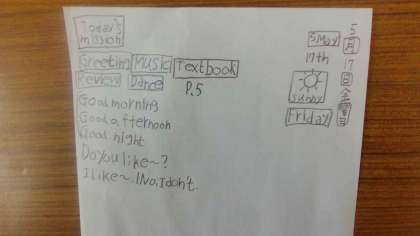 Today's
mission
Greeting Music Textbook
Review Dance P.5
Good morning
Good afternoon
Good night
Do you like~?
I like~. / No, I don't.
5 May
17th
sunny
Friday
5月17日金曜日